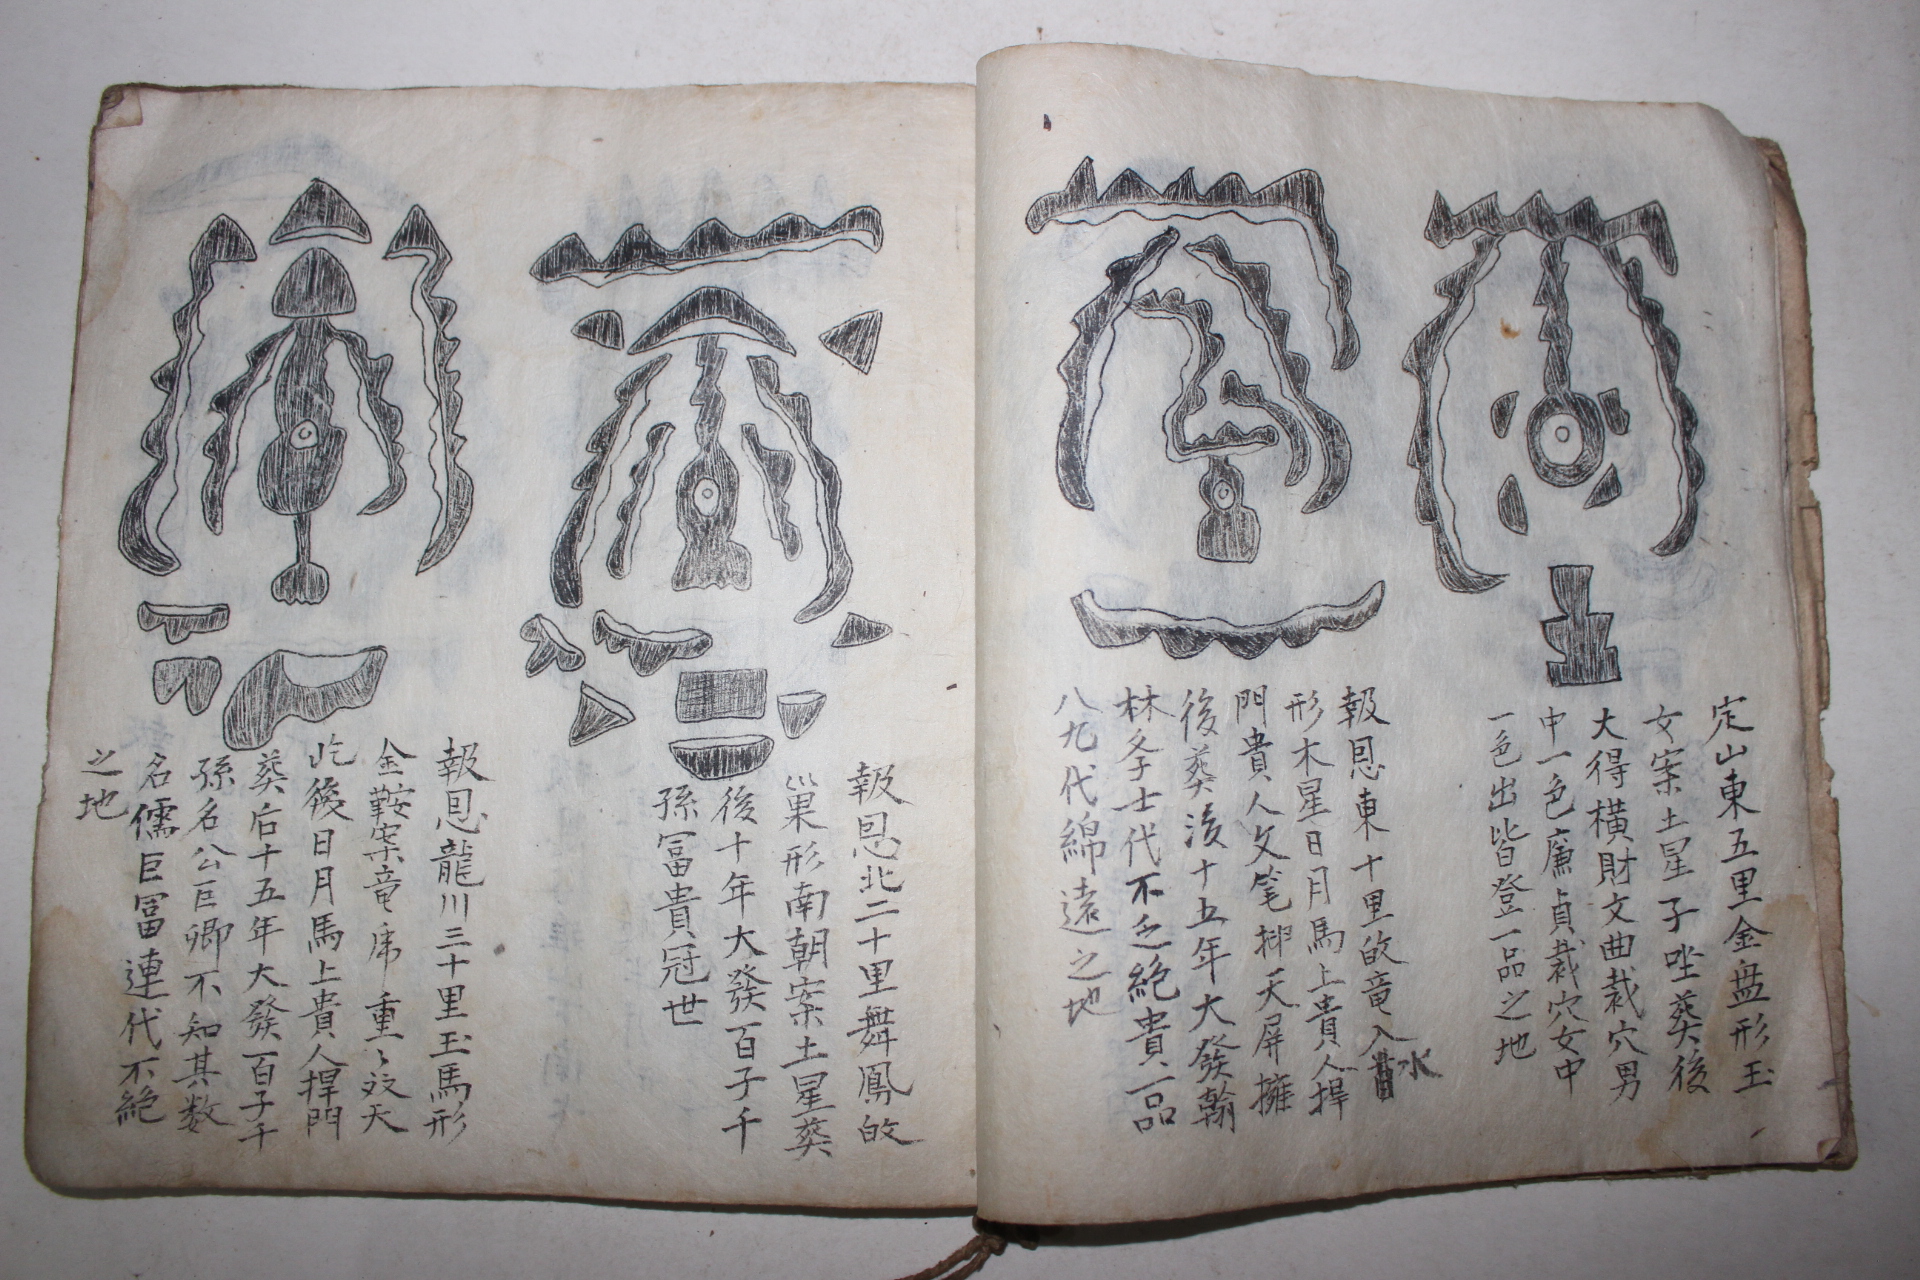 定山東五里金盤形玉
女案土星子坐葬後
大得橫財文曲裁穴男
中一色廉貞裁穴女中
一色出皆登一品之地
報恩東十里的竜入水
形木星日月馬上貴人捍
門貴人文笔排天屏擁
後葬後十五年大發翰
林冬士代不乏絶貴一品
八九代綿遠之地
報恩北二十里舞鳳的
巢形南朝案土星葬
後十年大發百子千
孫冨貴冠世
報恩龍川三十里玉馬形
金鞍案竜乕重〻天
後日月馬上貴人捍門
葬后十五年大發百子千
孫名公巨卿不知其数
名儒巨冨連代不絶
之地